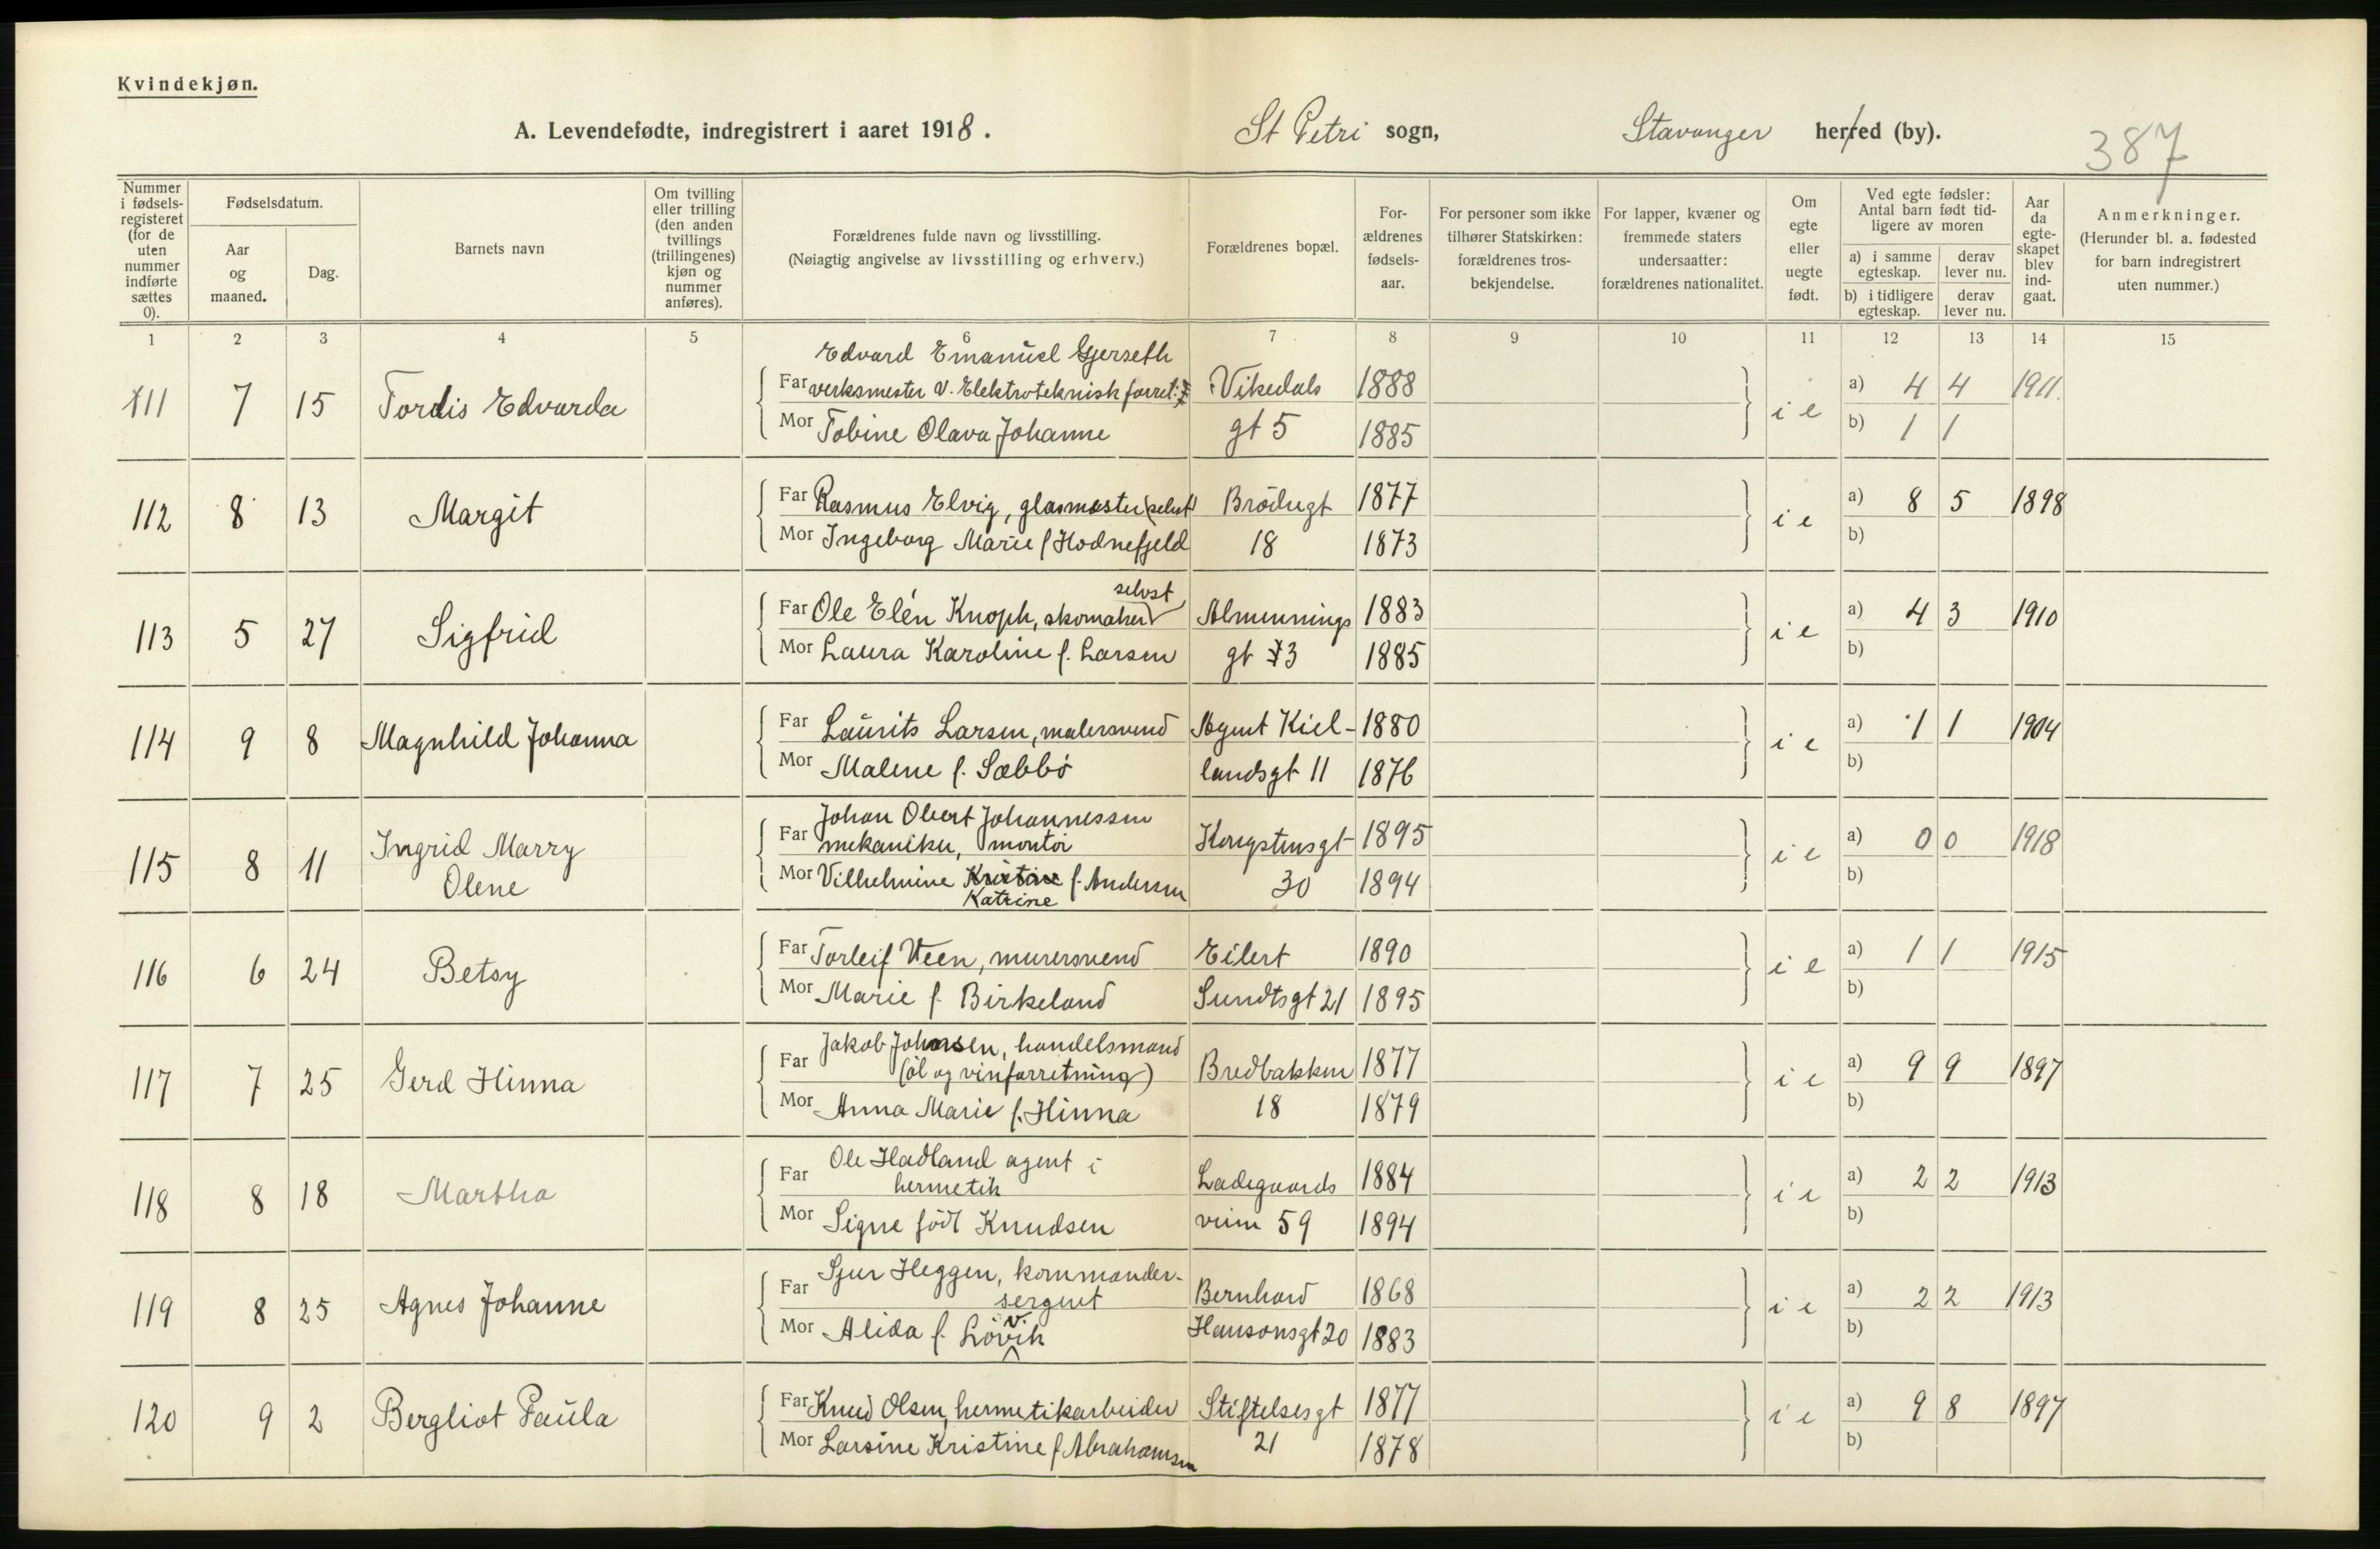 Kvindekjøn.
A. Levendefødte, indregistrert i aaret 1918. St Petri sogn, Stavanger herred (by). 387
Nummer i fødsels-registeret (for de uten nummer indførte sættes 0). | Fødselsdatum. Aar og maaned. | Dag. | Barnets navn | Om tvilling eller trilling (den anden tvillings (trillingenes) kjøn og nummer anføres). | Forældrenes fulde navn og livsstilling. (Nøiagtig angivelse av livsstilling og erhverv.) | Forældrenes bopæl. | For-ældrenes fødsels-aar. | For personer som ikke tilhører Statskirken: forældrenes tros-bekjendelse. | For lapper, kvæner og fremmede staters undersaatter: forældrenes nationalitet. | Om egte eller uegte født. | Ved egte fødsler: Antal barn født tid-ligere av moren a) i samme egteskap. derav lever nu. b) i tidligere egteskap. derav lever nu. | Aar da egte-skapet blev ind-gaat. | Anmerkninger. (Herunder bl. a. fødested for barn indregistrert uten nummer.)
1 2 3 4 5 6 7 8 9 10 11 12 13 14 15
Edvard Emanuel Gjerseth
111 7 15 Tordis Edvarda Far verksmester v. Elektroteknisk forret. Vikedals 1888 i e a) 4 4 1911.
Mor Tobine Olava Johanne gt 5 1885 b) 1 1
112 8 13 Margit Far Rasmus Elvig, glasmester (selvst Brödregt 1877 i e a) 8 5 1898
Mor Ingeborg Marie f Hodnefjeld 18 1873 b)
selvst
113 5 27 Sigfrid Far Ole Elén Knoph, skomaker Almennings 1883 i e a) 4 3 1910
Mor Laura Karoline f. Larsen gt 73 1885 b)
114 9 8 Magnhild Johanna Far Laurits Larsen, malersvend Agent Kiel- 1880 i e a) 1 1 1904
Mor Malene f. Sæbbö landsgt 11 1876 b)
Johan Obert Johannessen
115 8 11 Ingrid Marry Far mekaniker, montör Kongstensgt 1895 i e a) 0 0 1918
Olene Mor Vilhelmine Kristine f. Andersen 30 1894 b)
Katrine
116 6 24 Betsy Far Torleif Veen, murersvend Eilert 1890 i e a) 1 1 1915
Mor Marie f. Birkeland Sundtsgt 21 1895 b)
Jakob Johnsen, handelsmand
117 7 25 Gerd Hinna Far (öl og vinforretning) Bredbakken 1877 i e a) 9 9 1897
Mor Anna Marie f. Hinna 18 1879 b)
Ole Hadland agent i
118 8 18 Martha Far hermetik Ladegaards 1884 i e a) 2 2 1913
Mor Signe född Knudsen veien 59 1894 b)
Sjur Heggen, kommander-
119 8 25 Agnes Johanne Far sergent Bernhard 1868 i e a) 2 2 1913
Mor Alida f. Lövik Hansonsgt 20 1883 b)
v.
120 9 2 Bergliot Paula Far Knud Olsen, hermetikarbeider Stiftelsesgt 1877 i e a) 9 8 1897
Mor Larsine Kristine f Abrahamsen 21 1878 b)